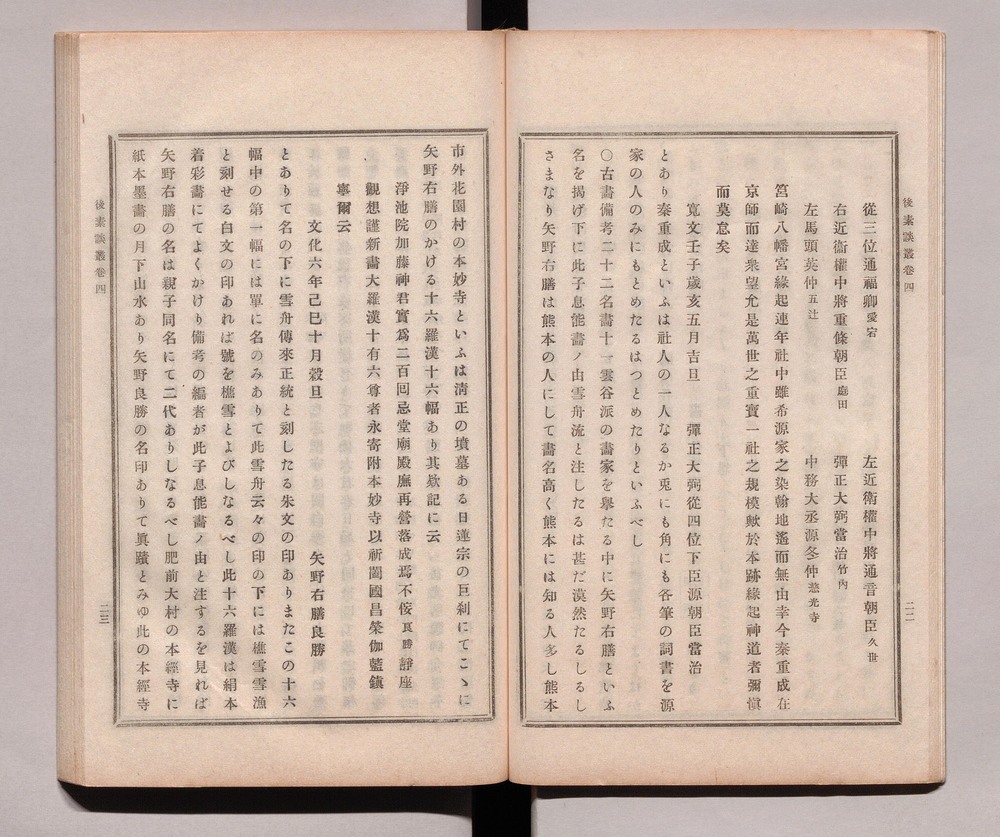 後素談叢卷四
二二
從三位通福卿愛宕 左近衛權中將通音朝臣久世
右近衞權中將重條朝臣庭田 彈正大弼當治竹內
左馬頭英仲五辻 中務大丞源冬仲慈光寺
筥崎八幡宮緣起連年社中雖希源家之染翰地遙而無由幸今秦重成在
京師而達衆望尤是萬世之重寶一社之規模歟於本跡緣起神道者彌愼
而莫怠矣
寬文壬子歲亥五月吉旦 彈正大弼從四位下臣源朝臣當治
とあり秦重成といふは社人の一人なるか兎にも角にも各筆の詞書を源
家の人のみにもとめたるはつとめたりといふべし
〇古畫備考二十二名畫十一雲谷派の畫家を擧たる中に矢野右膳といふ
名を揭げ下に此子息能畫ノ由雪舟流と注したるは甚だ漠然たるしるし
さまなり矢野右膳は熊本の人にして畫名高く熊本には知る人多し熊本
市外花園村の本妙寺といふは淸正の墳墓ある日蓮宗の巨刹にてこゝに
矢野右膳のかける十六羅漢十六幅あり其欵記に云
淨池院加藤神君實爲二百囘忌堂廟殿廡再營落成焉不侫良勝靜座
觀想謹新畫大羅漢十有六尊者永寄附本妙寺以祈闔國昌榮伽藍鎭
寧爾云
文化六年己巳十月穀旦 矢野右膳良勝
とありて名の下に雪舟傳來正統と刻したる朱文の印ありまたこの十六
幅中の第一幅には單に名のみありて此雪舟云々の印の下には樵雪雪漁
と刻せる白文の印あれば號を樵雪とよびしなるべし此十六羅漢は絹本
着彩畫にてよくかけり備考の編者が此子息能畫ノ由と注するを見れば
矢野右膳の名は親子同名にて二代ありしなるべし肥前大村の本經寺に
紙本墨畫の月下山水あり矢野良勝の名印ありて眞蹟とみゆ此の本經寺
後素談叢卷四
二三